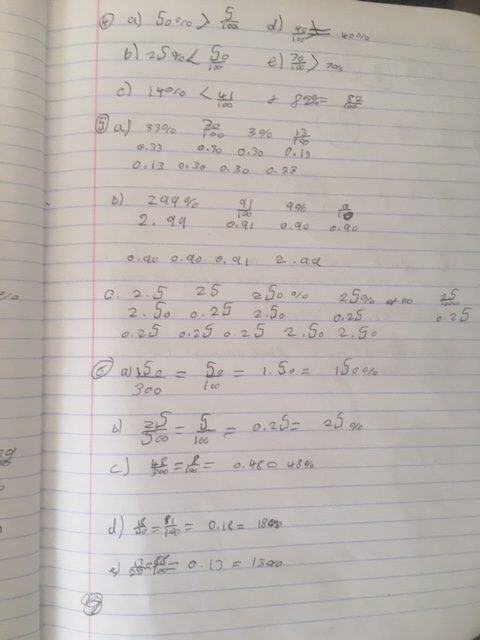 ④ a) 50% > 5/100 d) 40/100 = 40%
b) 25% < 50/100 e) 70/100 > 7%
c) 14% < 41/100 f 82% = 82/100
⑤ a) 33% 30/100 3% 13/100
0.33 0.30 0.30 0.13
0.13 0.30 0.30 0.33
b) 299% 91/100 9% 9/10
2.99 0.91 0.90 0.90
0.90 0.90 0.91 2.99
c. 2.5 25 250% 25% 25/100
2.50 0.25 2.50 0.25 0.25
0.25 0.25 0.25 2.50 2.50
⑥ a) 150/300 = 50/100 = 1.50 = 150%
b) 25/500 = 5/100 = 0.25 = 25%
c) = 0.48 = 48%
d) = 0.18 = 18%
e) = 0.13 = 13%